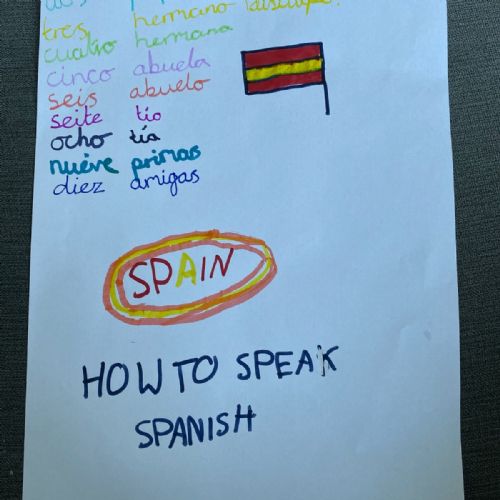 tres hermano
cuatro hermana
cinco abuela
seis abuelo
seite tío
ocho tía
nuéve primas
diez amigas
SPAIN
HOW TO SPEAK
SPANISH